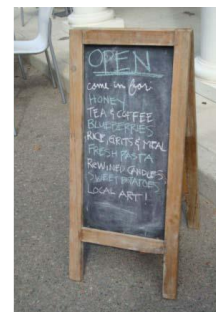 OPEN
come in for:
HONEY
TEA & COFFEE
BLUEBERRIES
RICE, GRITS & MEAL
FRESH PASTA
REWINED CANDLES
SWEET POTATOES
LOCAL ART!